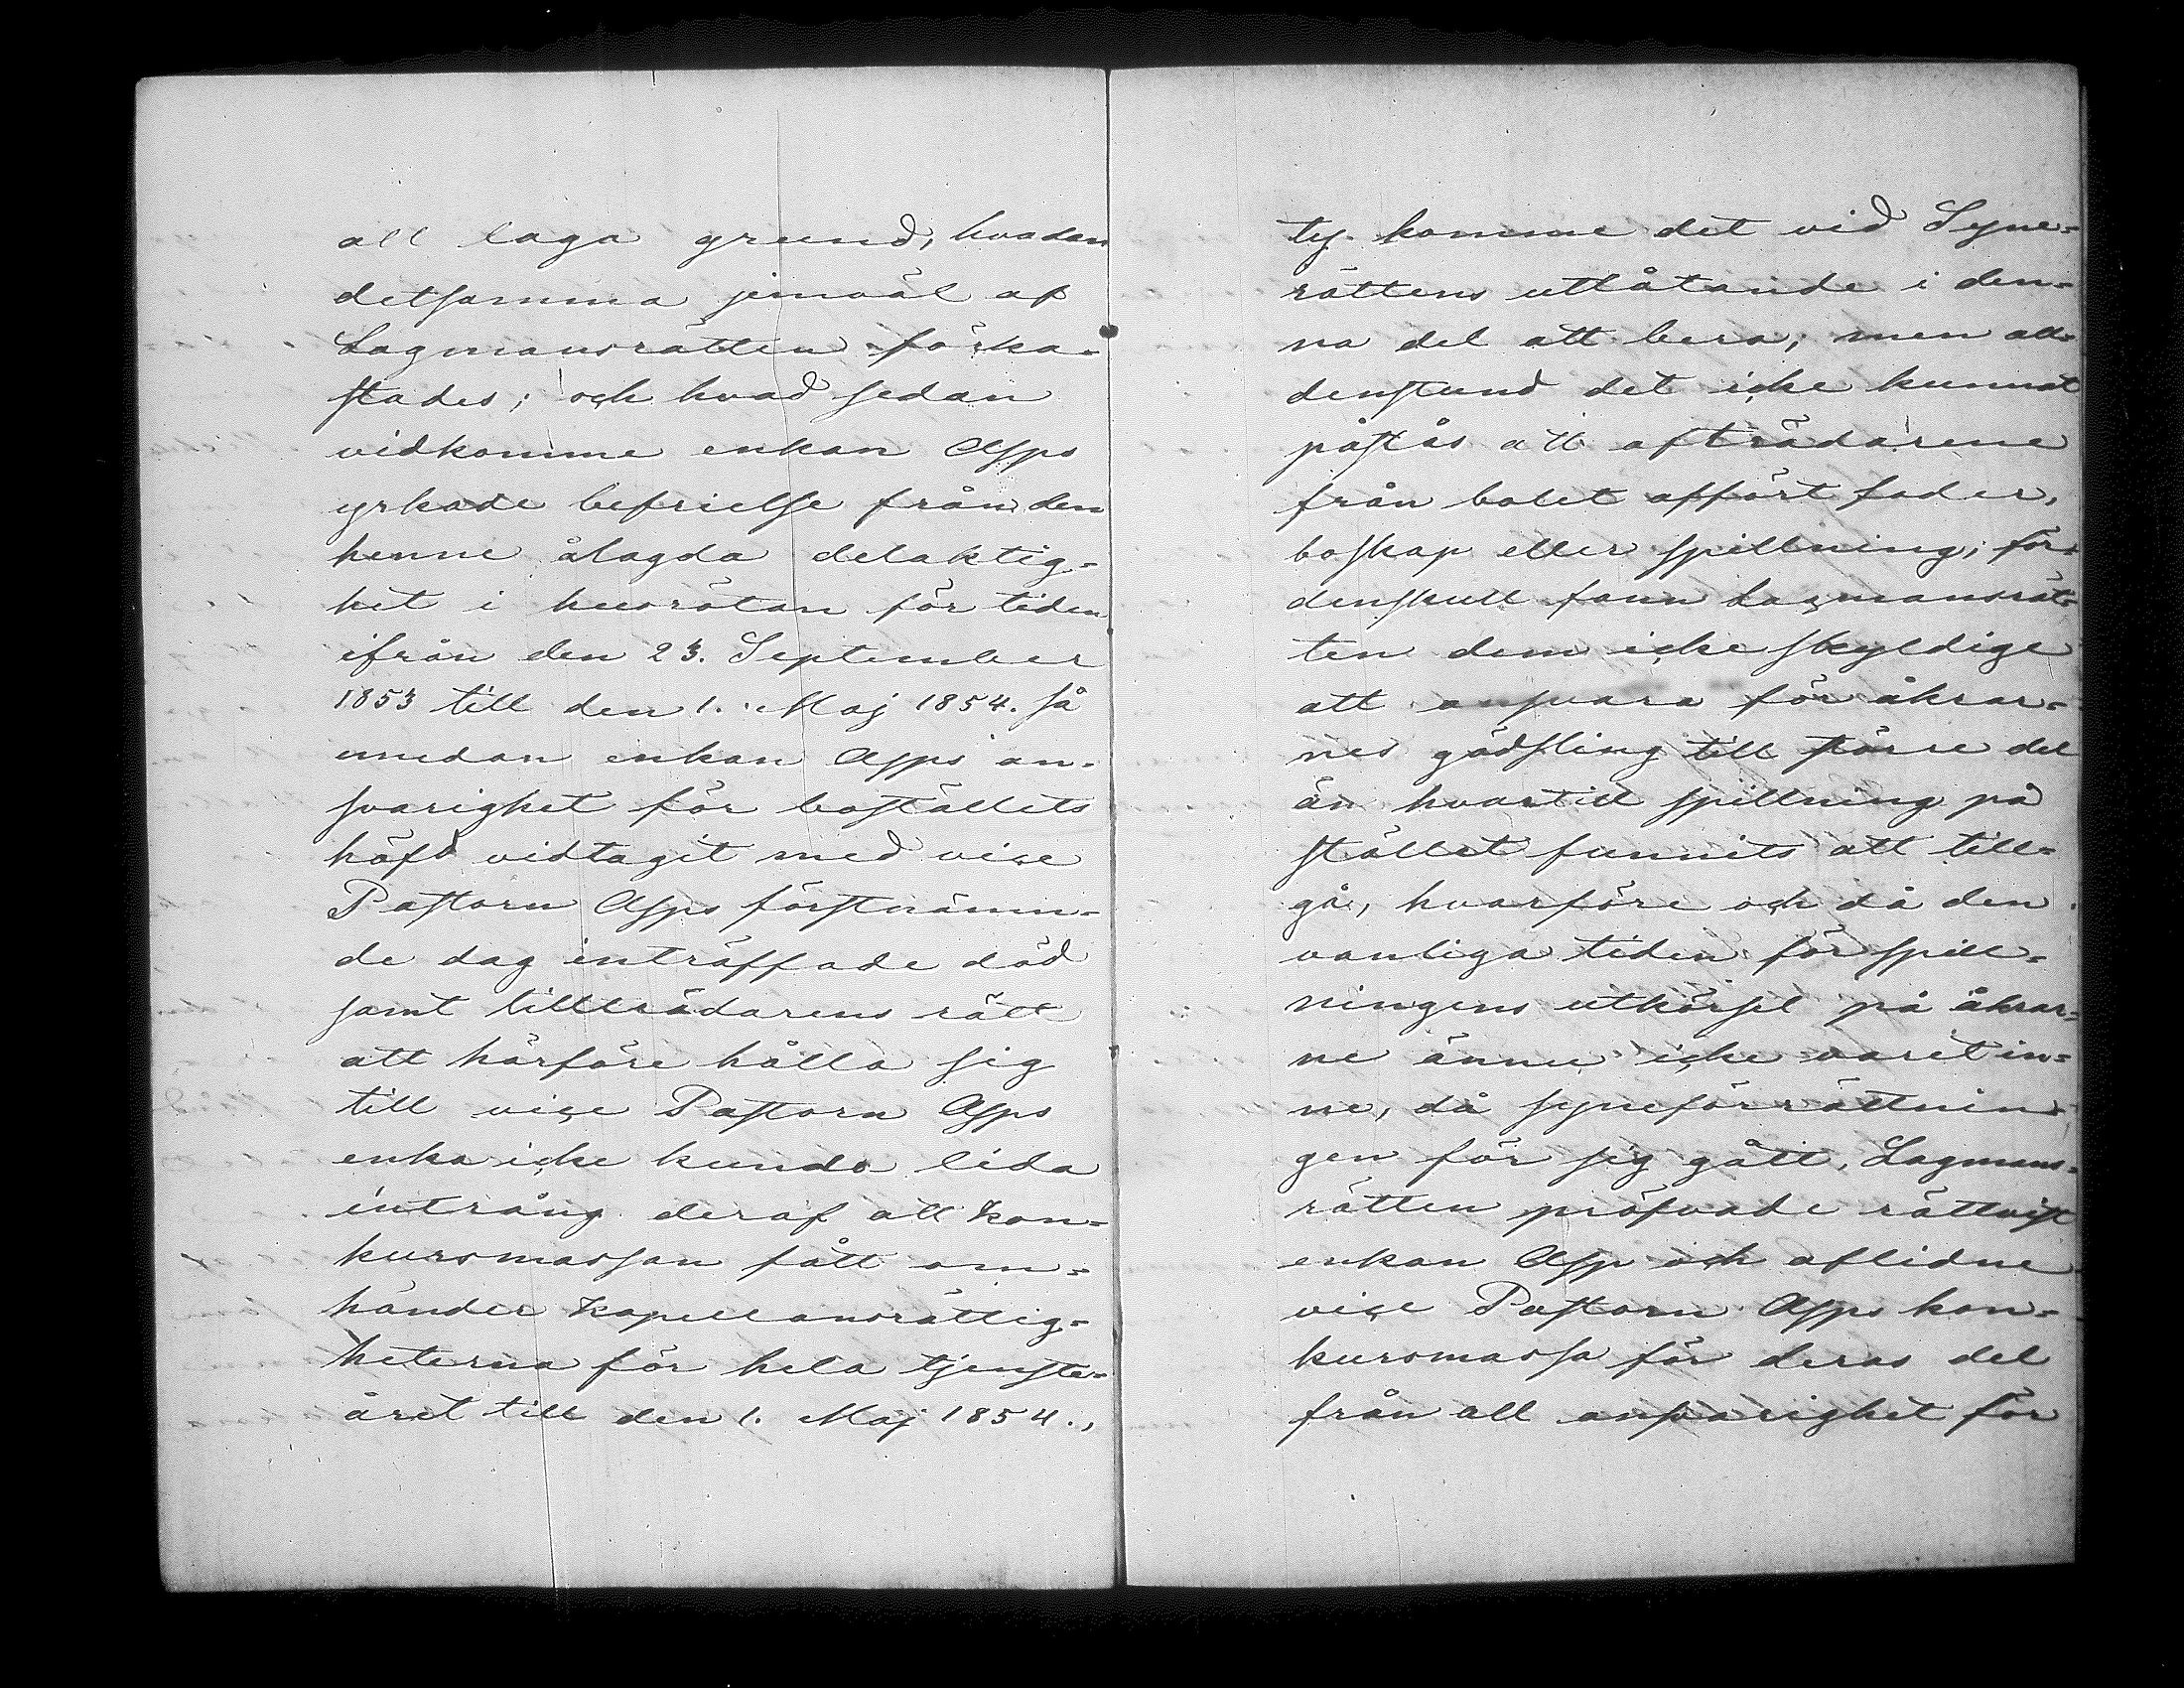 all laga grund, hvadan
detsamma jemväl af
Lagmansrätten förka-
stades; och hvad sedan
vidkomme enkan Asps
yrkade befrielse från den
henne ålagda delaktig-
het i husrötan för tiden
ifrån den 23. September
1853 till den 1. Maj 1854. så
emedan enkan Asps an-
svarighet för boställets
häfd vidtagit med vice
Pastorn Asps förstnämn-
de dag inträffade död
samt tillträdarens rätt
att härföre hålla sig
till vice Pastorn Asps
enka icke kunde lida
intrång deraf att kon-
kursmassan fått om-
händer kapellansrättig-
heterna för hela tjenste-
året till den 1. Maj 1854.,
ty. komme det vid Syne-
rättens utlåtande i den-
na del att bero; men all-
denstund det icke kunnat
påstås att afträdarene
från bolet affört foder,
boskap eller spillning; för-
denskull fann Lagmansrät-
ten dem icke skyldige
att ansvara för åkrar-
nes gödsling till större del
än hvartill spillning på
stället funnits att till-
gå, hvarföre och då den
vanliga tiden för spill-
ningens utkörsel på åkrar-
ne ännu icke varit in-
ne, då syneförrättnin-
gen för sig gått, Lagmans-
rätten pröfvade rättvist
enkan Asp och aflidne
vice Pastorn Asps kon-
kursmassa för deras del
från all ansvarighet för